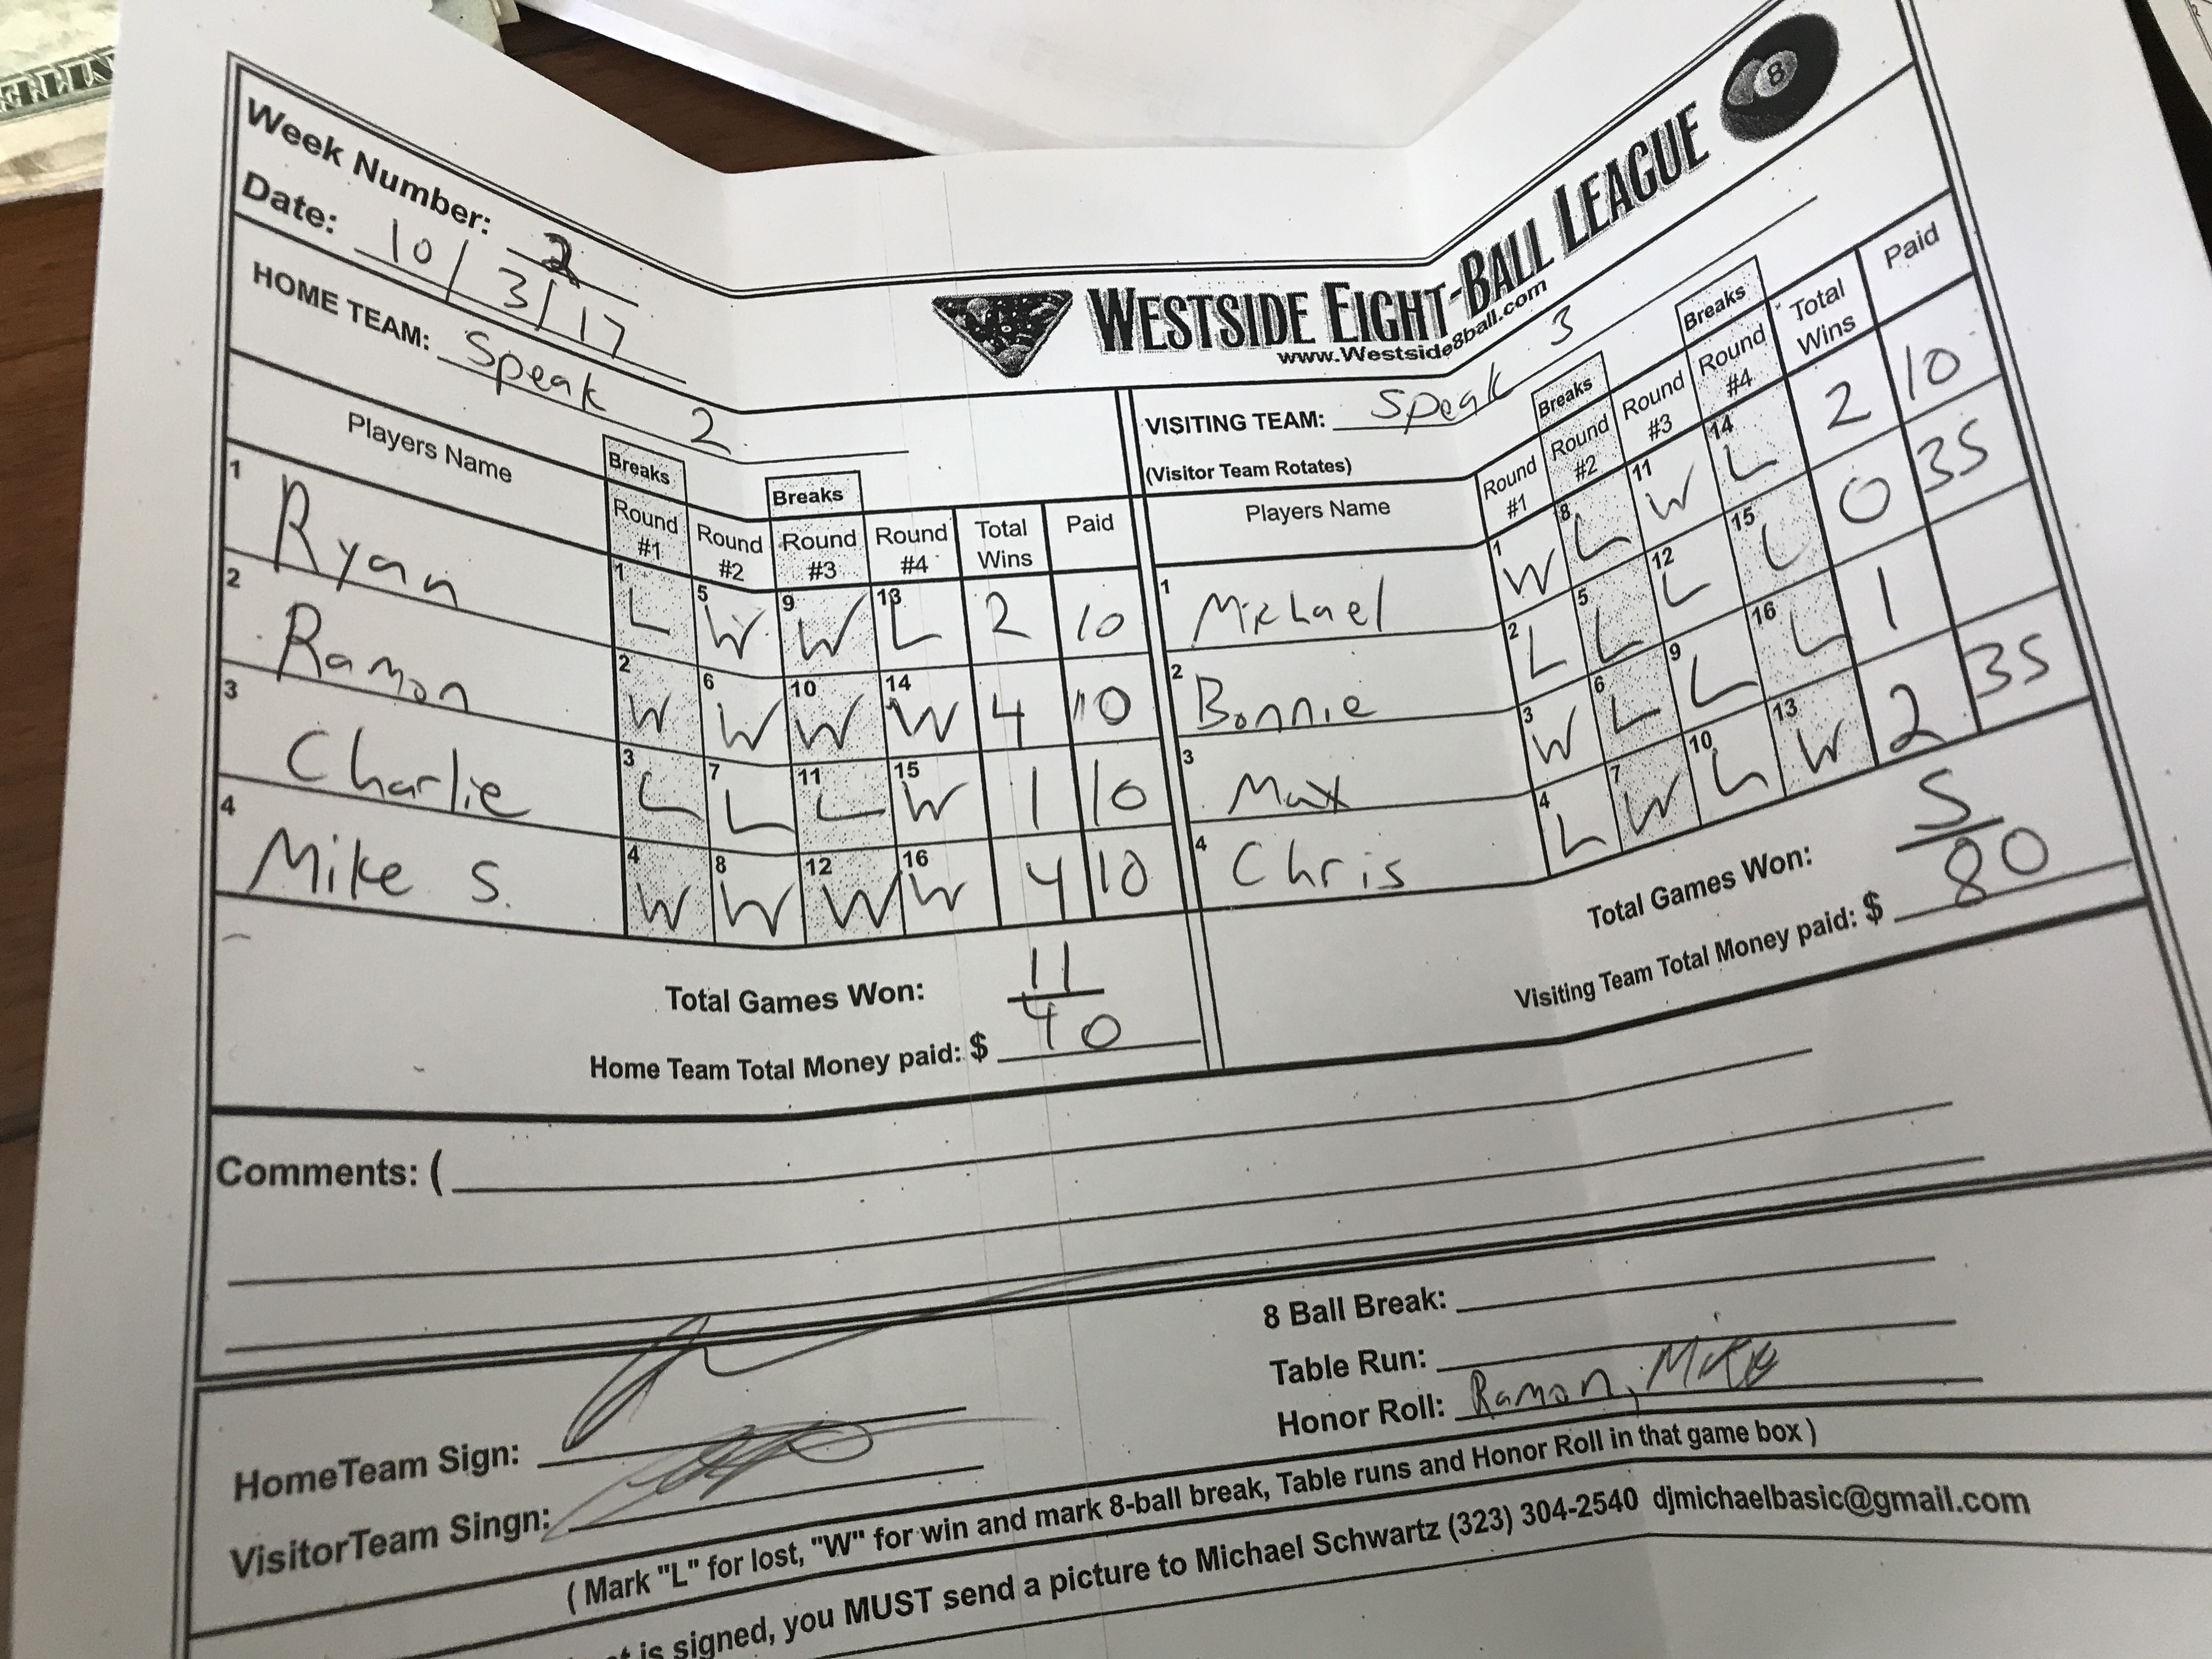 Week Number: 2
Date: 10/3/17
HOME TEAM: Speak 2
WESTSIDE EIGHT-BALL LEAGUE
www.Westside8ball.com
8
VISITING TEAM: Speak 3
(Visitor Team Rotates)
Players Name
Breaks Round #1
Round #2
Breaks Round #3
Round #4
Total Wins
Paid
1 Ryan 1 L 5 W 9 W 13 L 2 10
2 Ramon 2 W 6 W 10 W 14 W 4 10
3 Charlie 3 L 7 L 11 L 15 W 1 10
4 Mike S. 4 W 8 W 12 W 16 W 4 10
Total Games Won: 11
Home Team Total Money paid: $ 40
Players Name
Round #1
Breaks Round #2
Round #3
Breaks Round #4
Total Wins
Paid
1 Michael 1 W 8 L 11 W 14 L 2 10
2 Bonnie 2 L 5 L 12 L 15 L 0 35
3 Max 3 W 6 L 9 L 16 L 1
4 Chris 4 L 7 W 10 L 13 W 2 35
Total Games Won: 5
Visiting Team Total Money paid: $ 80
Comments: (
8 Ball Break:
Table Run:
Honor Roll: Ramon, Mike
HomeTeam Sign:
VisitorTeam Singn:
( Mark "L" for lost, "W" for win and mark 8-ball break, Table runs and Honor Roll in that game box )
is signed, you MUST send a picture to Michael Schwartz (323) 304-2540 djmichaelbasic@gmail.com